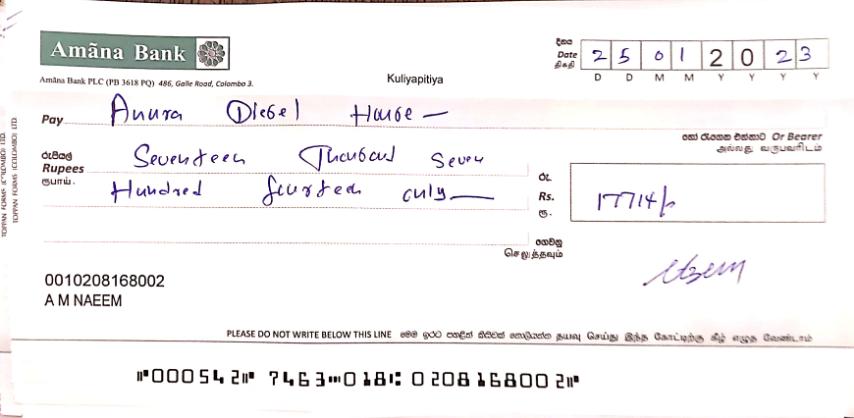 Amãna Bank
Amãna Bank PLC (PB 3618 PQ) 486, Galle Road, Colombo 3.
Kuliyapitiya
දිනය
Date 2 5 0 1 2 0 2 3
திகதி D D M M Y Y Y Y
Pay Anura Diesel House —
හෝ රැගෙන එන්නාට Or Bearer
அல்லது வருபவரிடம்
රුපියල්
Rupees Seventeen Thousand Seven
ரூபாய். Hundred fourteen only —
රු.
Rs. 17714/-
ரூ.
ගෙවනු
செலுத்தவும்
0010208168002
A M NAEEM
PLEASE DO NOT WRITE BELOW THIS LINE மெම ඉරට පහළින් කිසිවක් නොලියන්න தயவு செய்து இந்த கோட்டிற்கு கீழ் எழுத வேண்டாம்
⑈000542⑈ 7463⑉018⑆ 0208168002⑈
TOPPAN FORMS (COLOMBO) LTD.
TOPPAN FORMS (COLOMBO) LTD